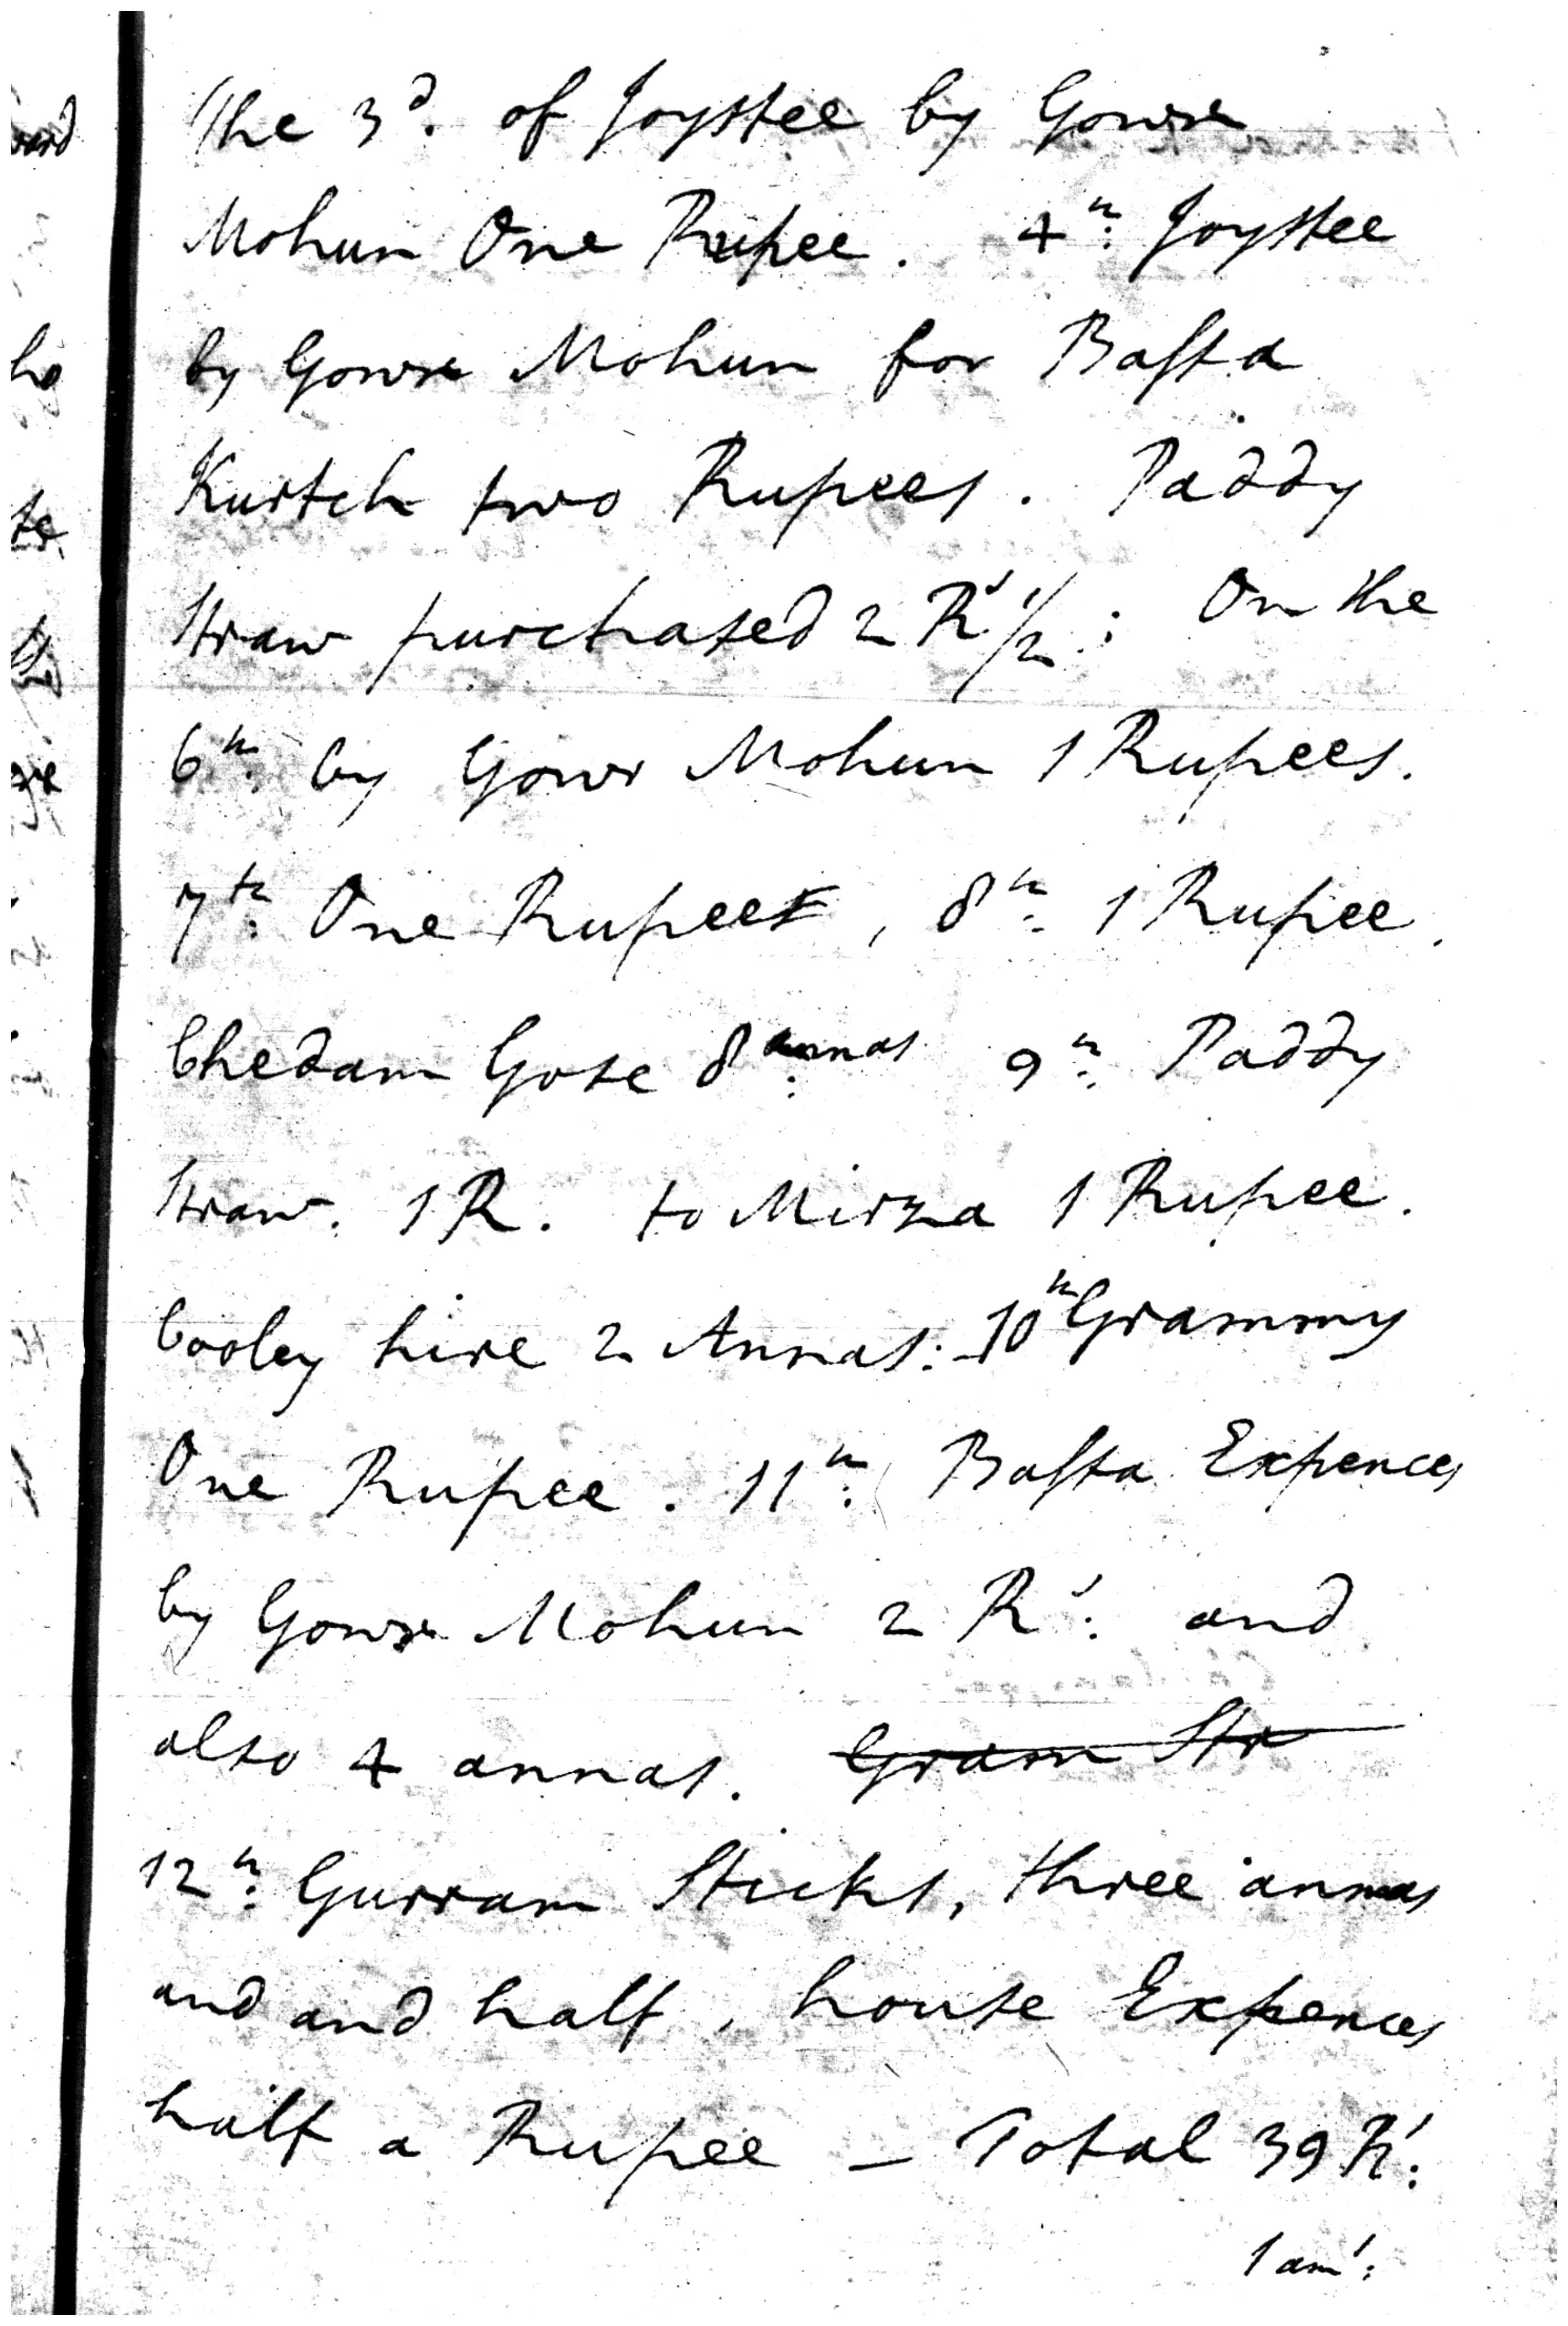 The 3d. of Joystee by Gowr
Mohun One Rupee. 4th: Joystee
by Gowr Mohun for Bassta
Kurtch two Rupees. Paddy
Straw purchased 2 Rs 1/2: On the
6th: by Gowr Mohun 1 Rupees.
7th: One Rupee, 8th: 1 Rupee.
Chedam Gose 8 annas 9th: Paddy
Straw. 1 R. to Mirza 1 Rupee.
Cooley hire 2 Annas: 10th Grammy
One Rupee. 11th: Bassta Expences
by Gowr Mohun 2 Rs: and
also 4 annas. Gram Str
12th: Gurram Sticks, three annas
and and half, house Expences
half a Rupee – Total 39 Rs:
1 ans: